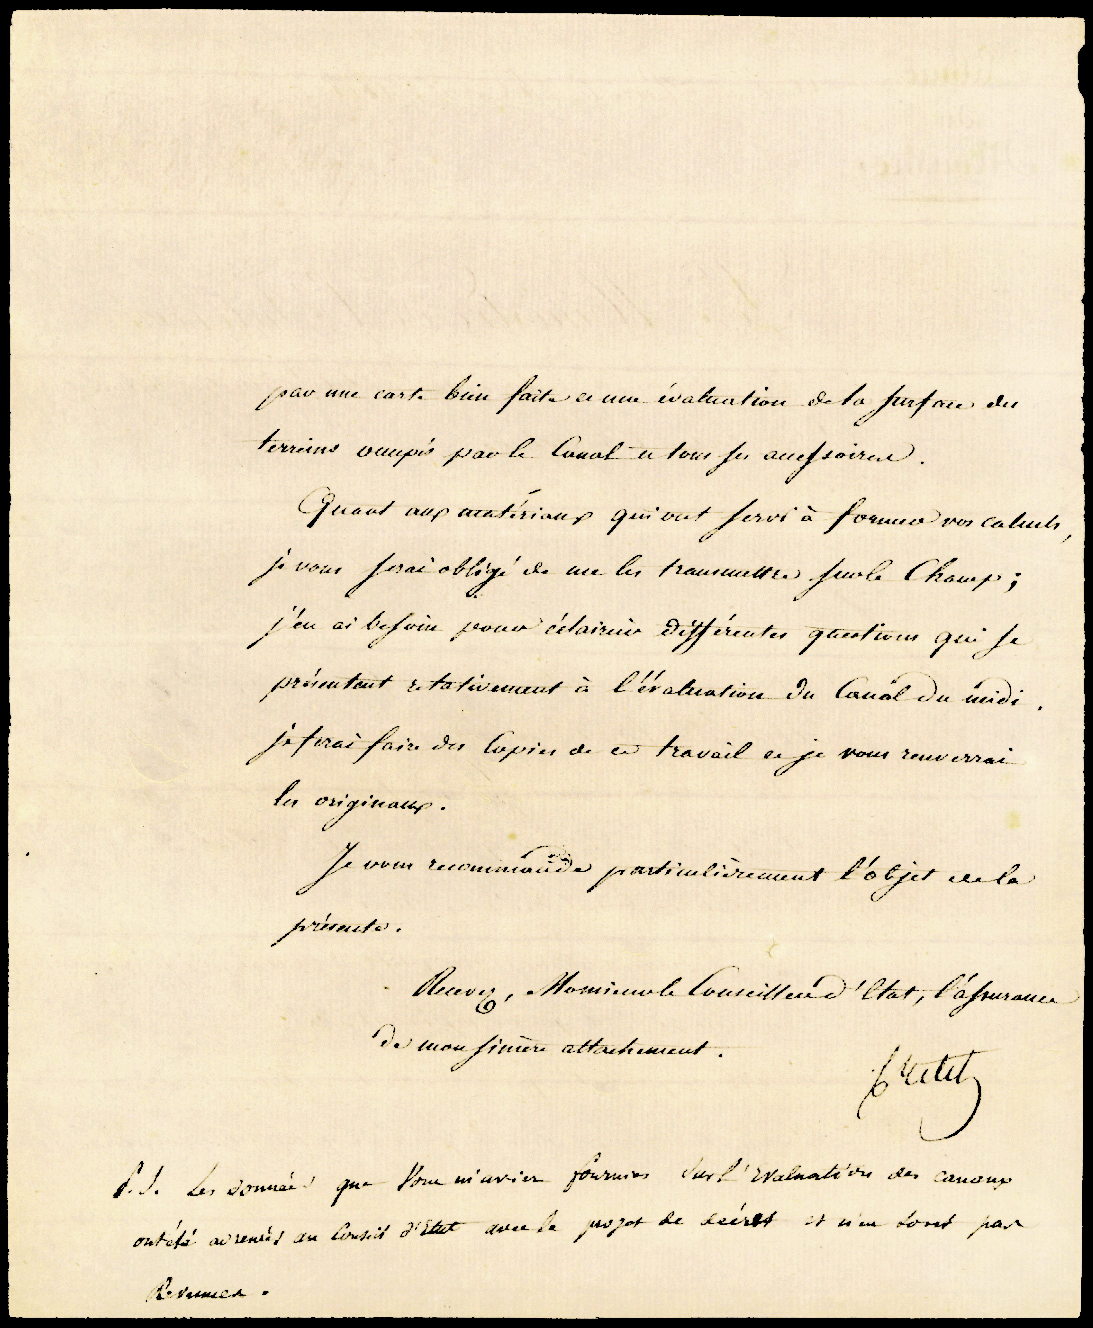 par une carte bien faite et une évaluation de la surface des
terreins occupés par le Canal et tous ses accessoires.
Quant aux matériaux qui ont servi à former vos calculs,
je vous serai obligé de me les transmettre sur le Champ;
j'en ai besoin pour éclaircir différentes questions qui se
présentent relativement à l'évaluation du Canal du midi.
je ferai faire des Copies de ce travail et je vous renverrai
les originaux.
Je vous recommande particulièrement l'objet de la
présente.
Recevez, Monsieur le Conseiller d'Etat, l'assurance
de mon sincère attachement.
Cretet
P.S. Les données que Vous m'aviez fournies sur l'évaluation des canaux
ont été adressés au Conseil d'Etat avec le projet de décret et n'en sont pas
Revenues.